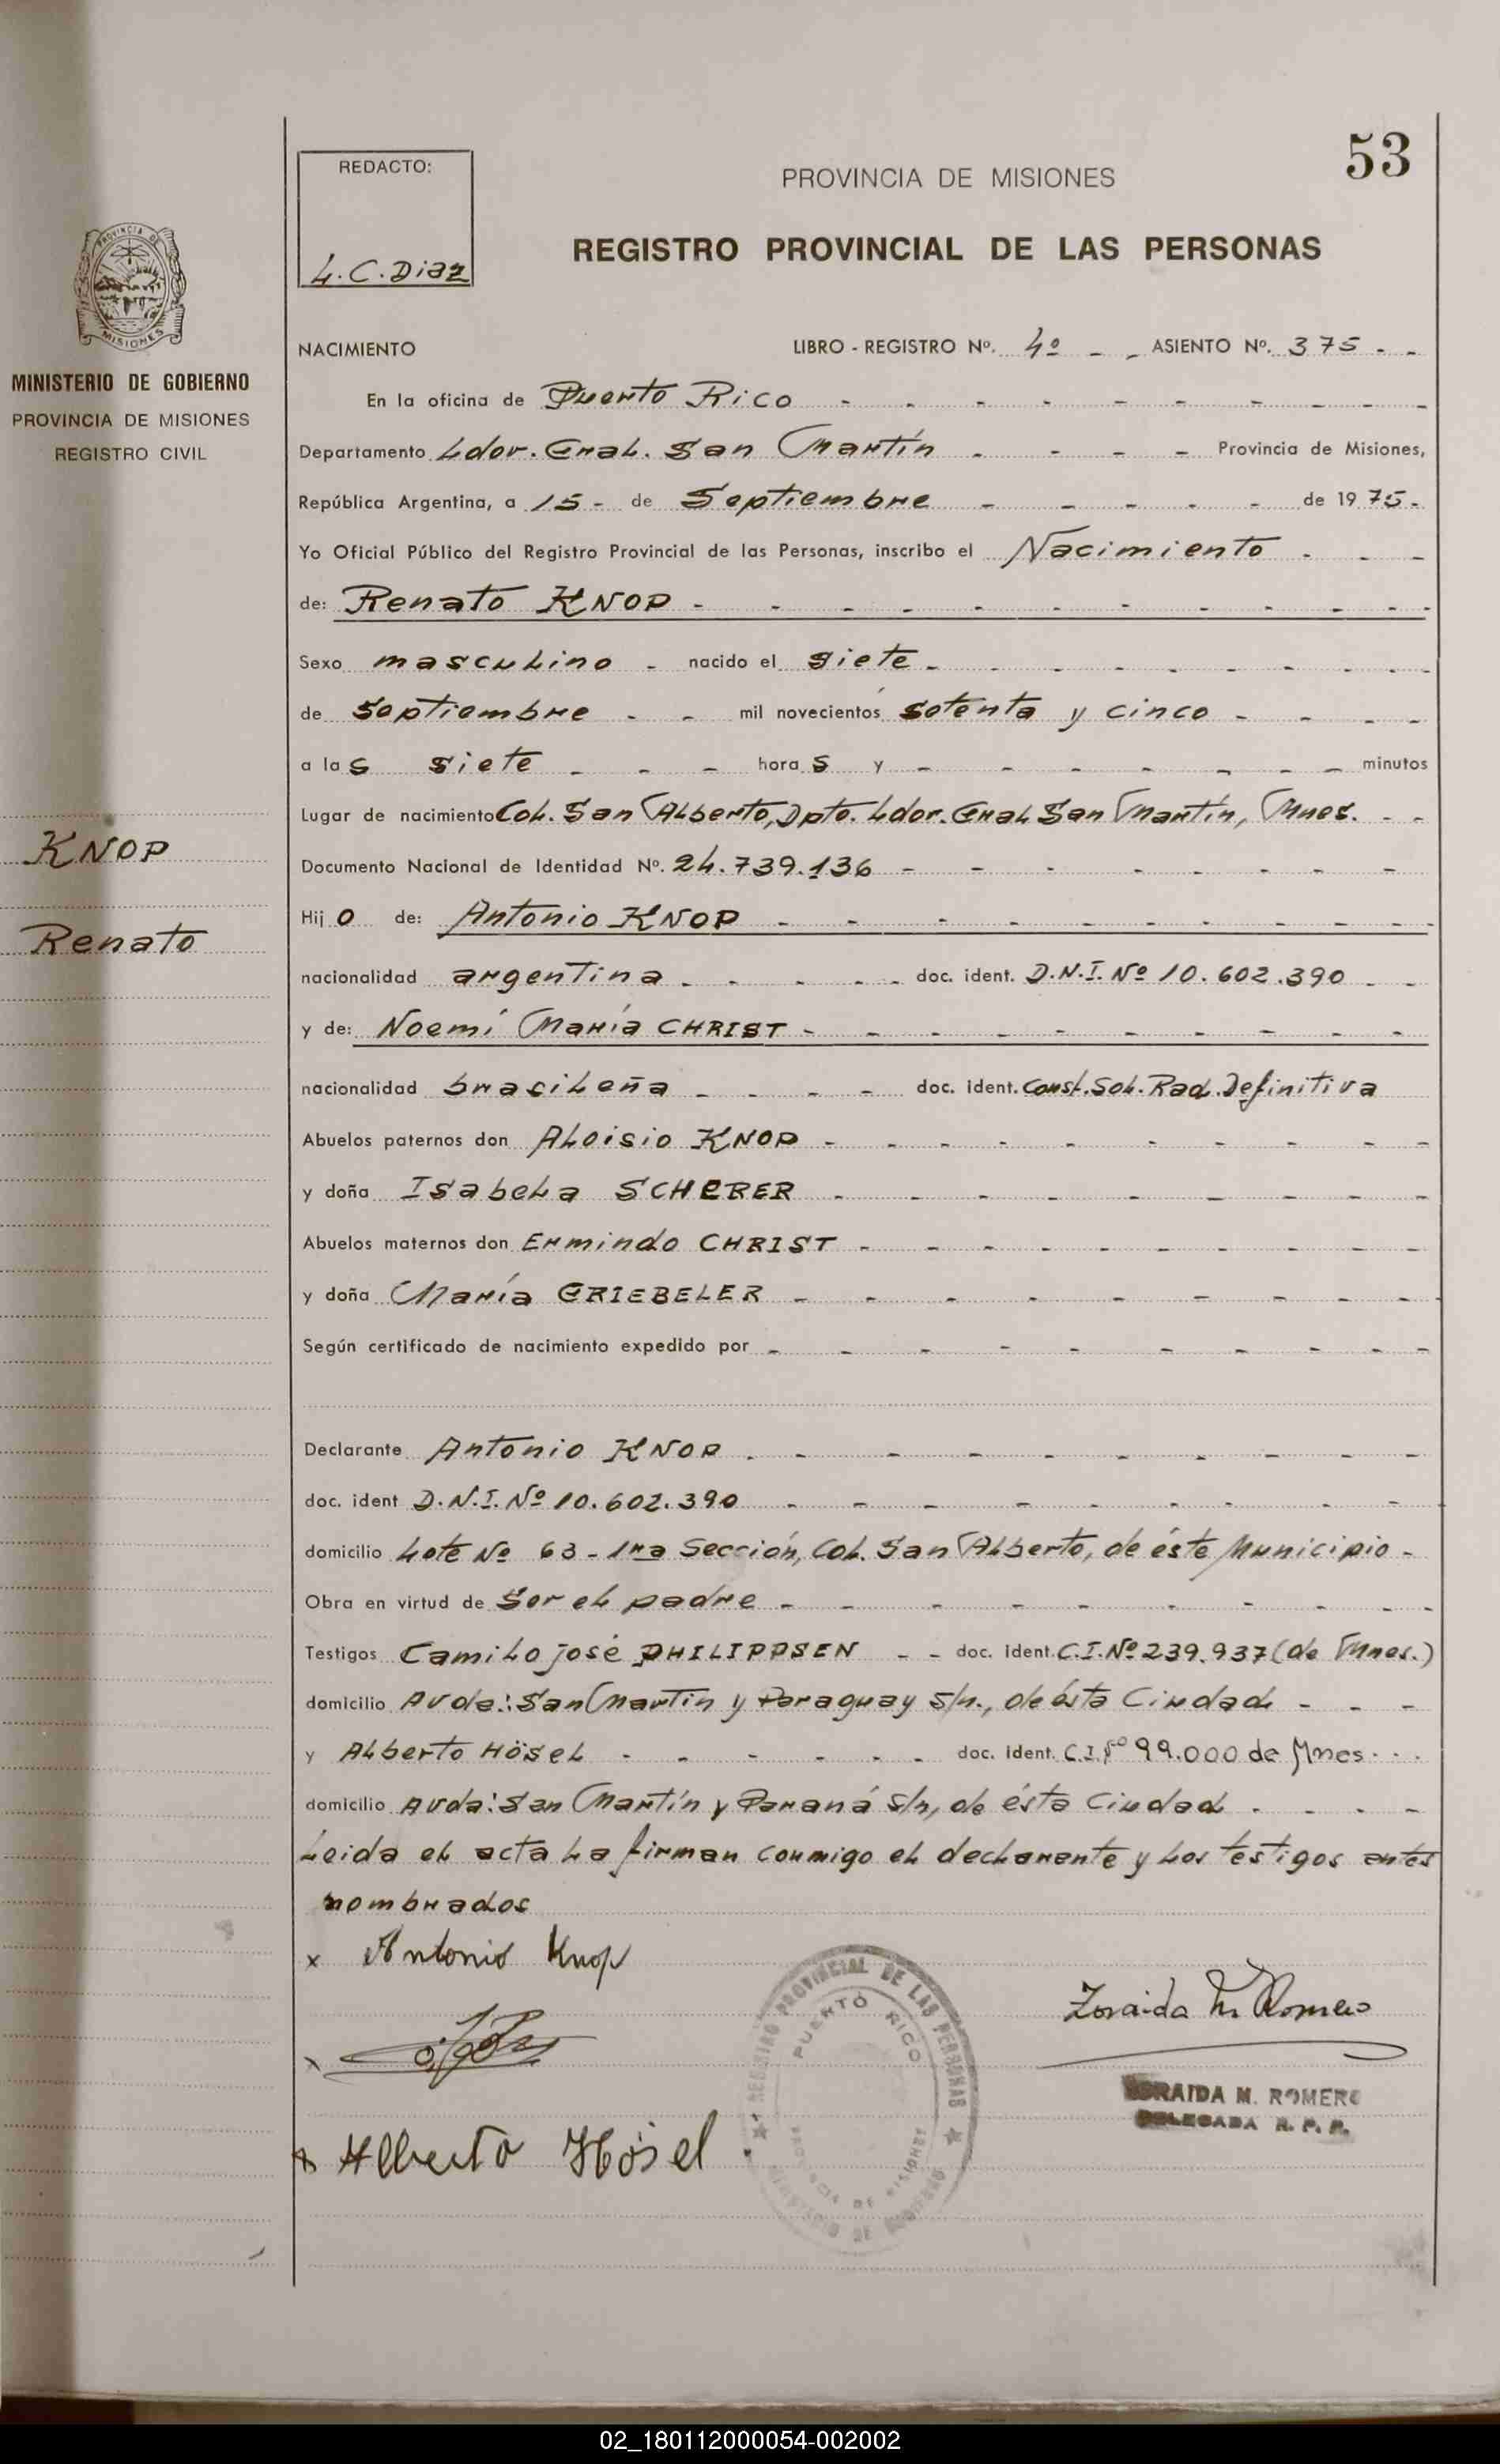 53
REDACTO:
L.C. Diaz
PROVINCIA DE MISIONES
REGISTRO PROVINCIAL DE LAS PERSONAS
PROVINCIA DE
MISIONES
MINISTERIO DE GOBIERNO
PROVINCIA DE MISIONES
REGISTRO CIVIL
NACIMIENTO LIBRO - REGISTRO Nº. 4º - - ASIENTO Nº. 375 - -
En la oficina de Puerto Rico
Departamento Ldor. Gral. San Martín Provincia de Misiones,
República Argentina, a 15 - de Septiembre de 1975.
Yo Oficial Público del Registro Provincial de las Personas, inscribo el Nacimiento
de: Renato KNOP
Sexo masculino - nacido el siete
de Septiembre mil novecientos setenta y cinco
a las siete horas y minutos
Lugar de nacimiento Col. San Alberto, Dpto. Ldor. Gral San Martín, Mnes.
KNOP
Documento Nacional de Identidad Nº. 24.739.136
Hijo de: Antonio KNOP
Renato
nacionalidad argentina doc. ident. D.N.I. Nº 10.602.390
y de: Noemí María CHRIST
nacionalidad brasileña doc. ident. Const. Sol. Rad. Definitiva
Abuelos paternos don Aloisio KNOP
y doña Isabela SCHERER
Abuelos maternos don Ermindo CHRIST
y doña María GRIEBELER
Según certificado de nacimiento expedido por
Declarante Antonio KNOP
doc. ident D.N.I. Nº 10.602.390
domicilio Lote Nº 63 - 1ra Sección, Col. San Alberto, de éste Municipio -
Obra en virtud de Ser el padre
Testigos Camilo José PHILIPPSEN - - doc. ident. C.I. Nº 239.937 (de Mnes.)
domicilio Avda: San Martín y Paraguay S/n., de ésta Ciudad
y Alberto Hösel doc. ident. C.I. Nº 99.000 de Mnes.
domicilio Avda: San Martín y Paraná S/n, de ésta Ciudad
Leida el acta la firman conmigo el declarante y los testigos antes
nombrados
x Antonio Knop
Zoraida M. Romero
x
ZORAIDA M. ROMERO
DELEGADA R. P. P.
x Alberto Hösel
REGISTRO PROVINCIAL DE LAS PERSONAS
PUERTO RICO
PROVINCIA DE MISIONES
MINISTERIO DE GOBIERNO
02_180112000054-002002